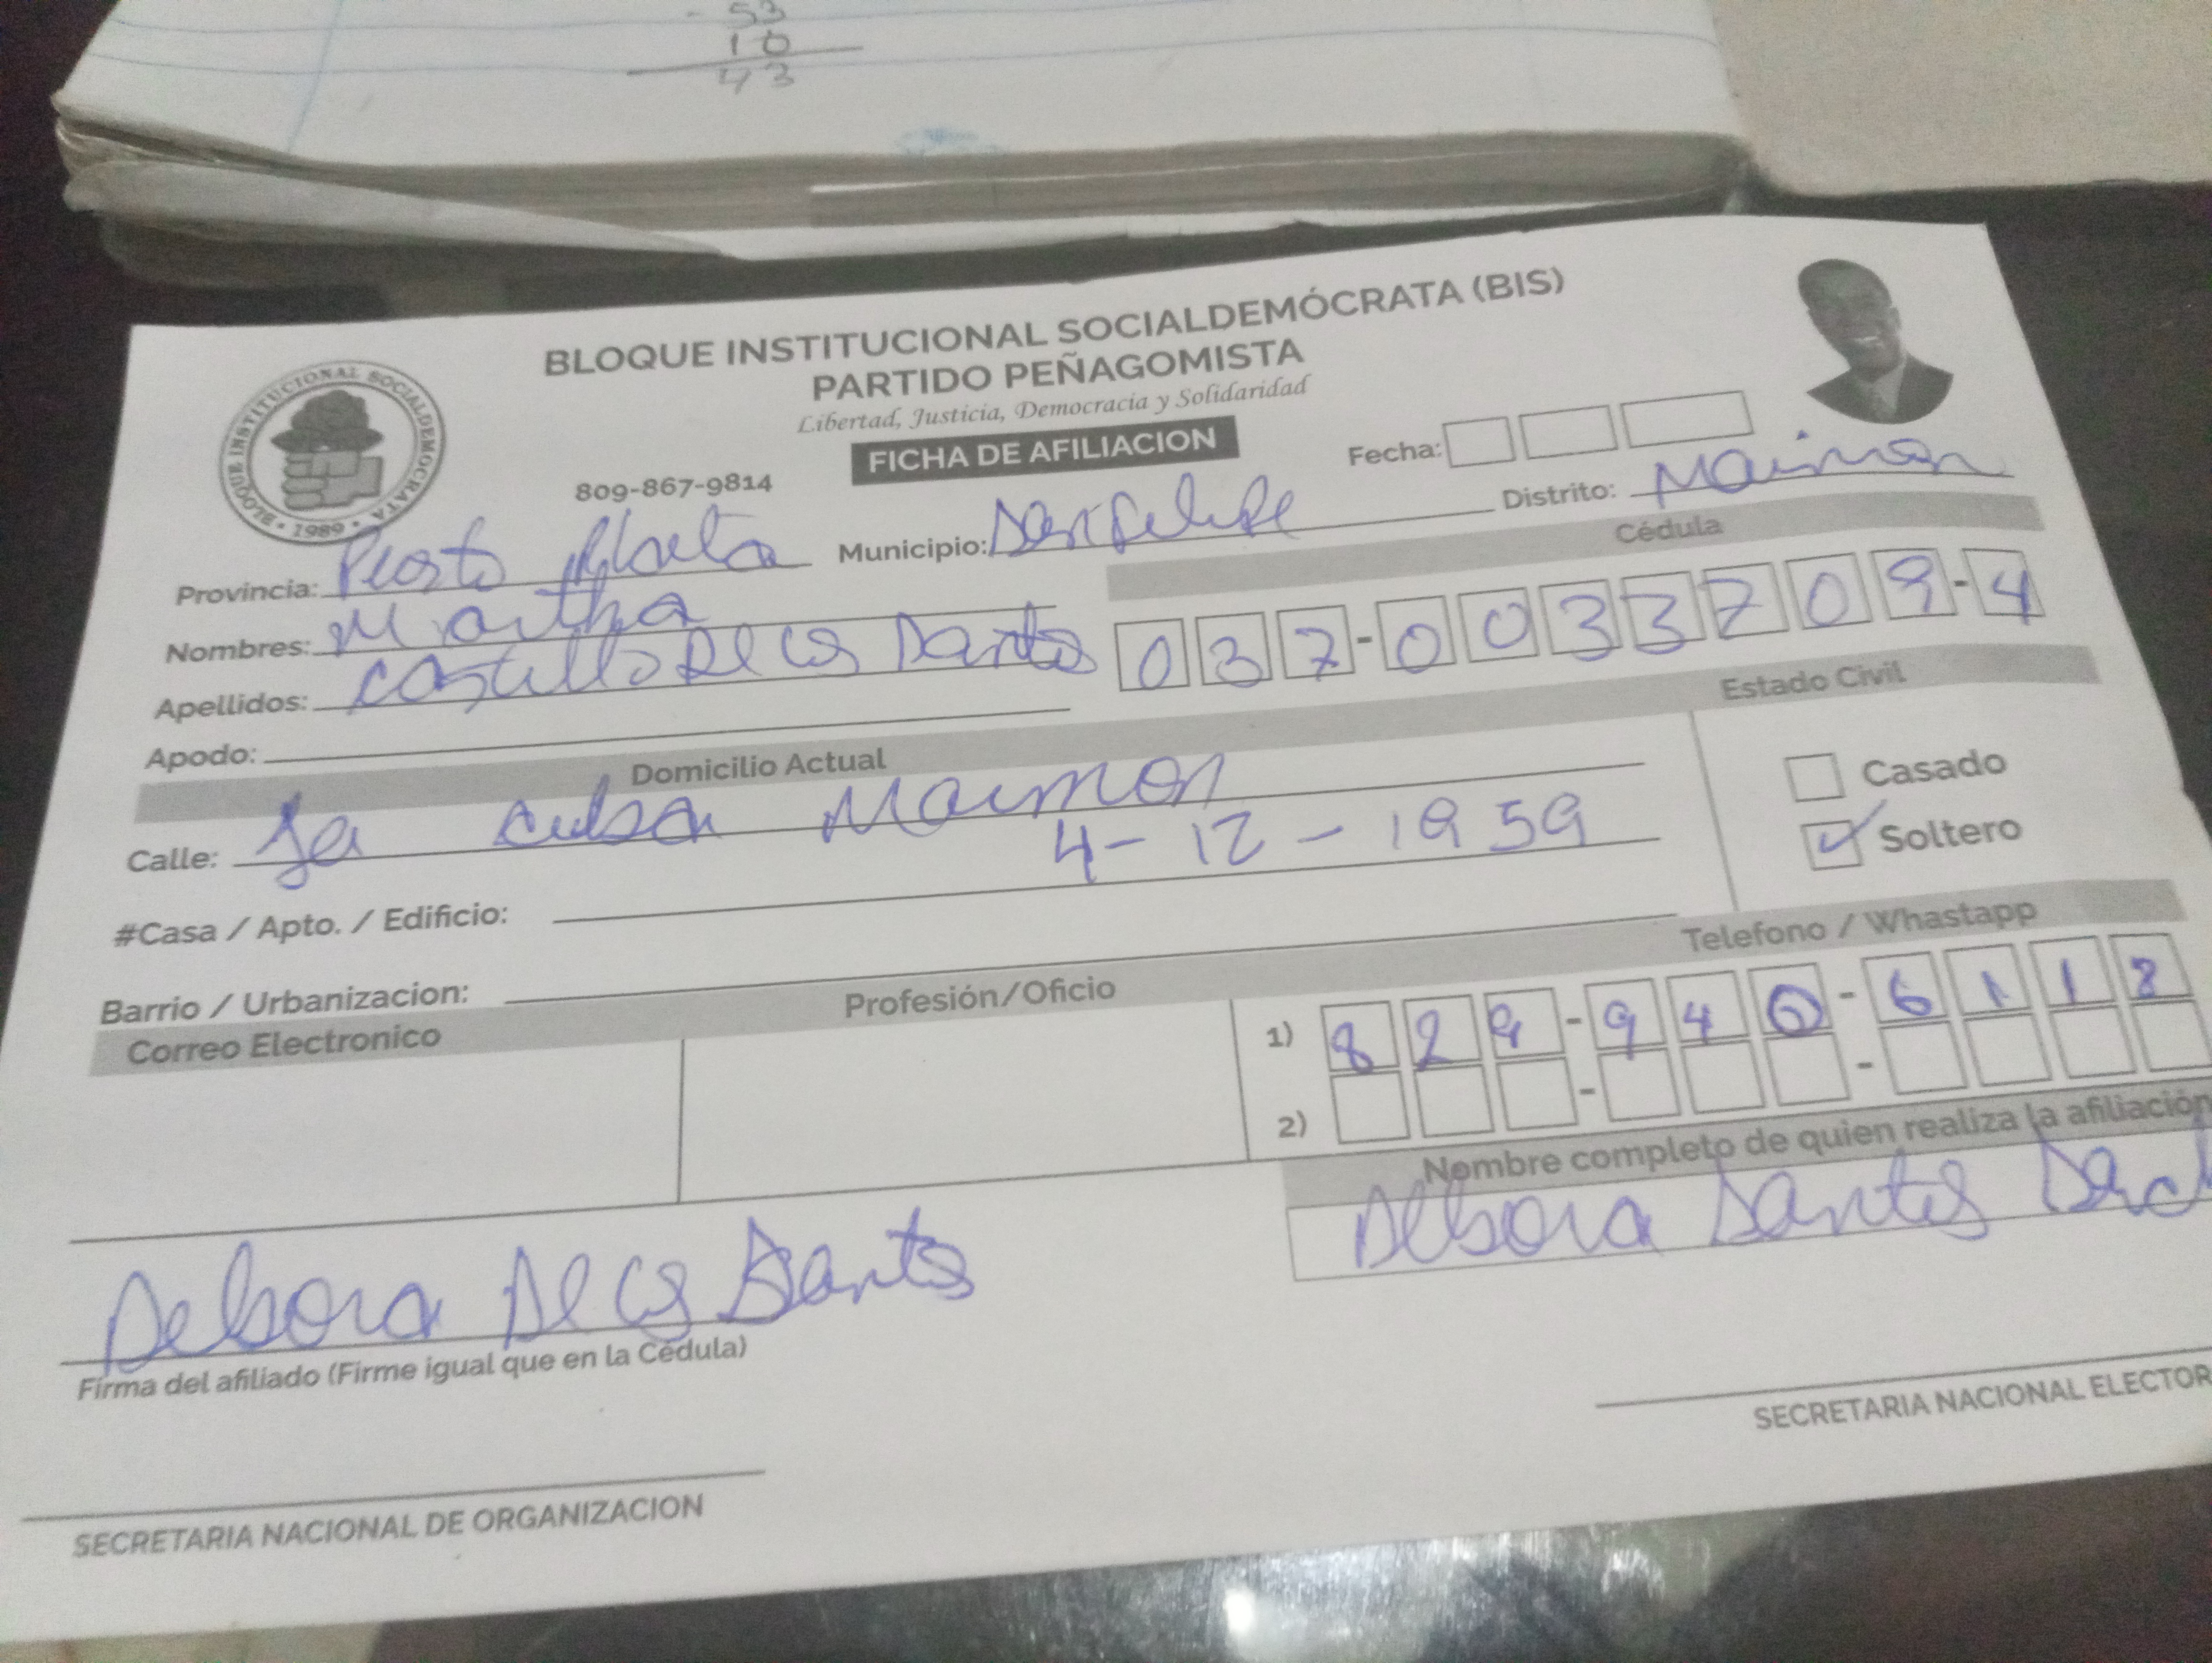 - 53
10
43
BLOQUE INSTITUCIONAL SOCIALDEMÓCRATA (BIS)
PARTIDO PEÑAGOMISTA
Libertad, Justicia, Democracia y Solidaridad
FICHA DE AFILIACION
BLOQUE INSTITUCIONAL SOCIALDEMOCRATA
• 1989 •
809-867-9814
Fecha:
Provincia: Puerto Plata Municipio: San Felipe Distrito: Maimon
Cédula
Nombres: Martha
037-0033709-4
Apellidos: Castillo De los Santos
Apodo:
Domicilio Actual
Estado Civil
Calle: La cuba Maimon
Casado
4-12-1959
Soltero
#Casa / Apto. / Edificio:
Barrio / Urbanizacion:
Telefono / Whastapp
Correo Electronico
Profesión/Oficio
1) 829-940-6118
2)
Nombre completo de quien realiza la afiliación
Debora Santos
Debora De los Santos
Firma del afiliado (Firme igual que en la Cédula)
SECRETARIA NACIONAL ELECTOR
SECRETARIA NACIONAL DE ORGANIZACION